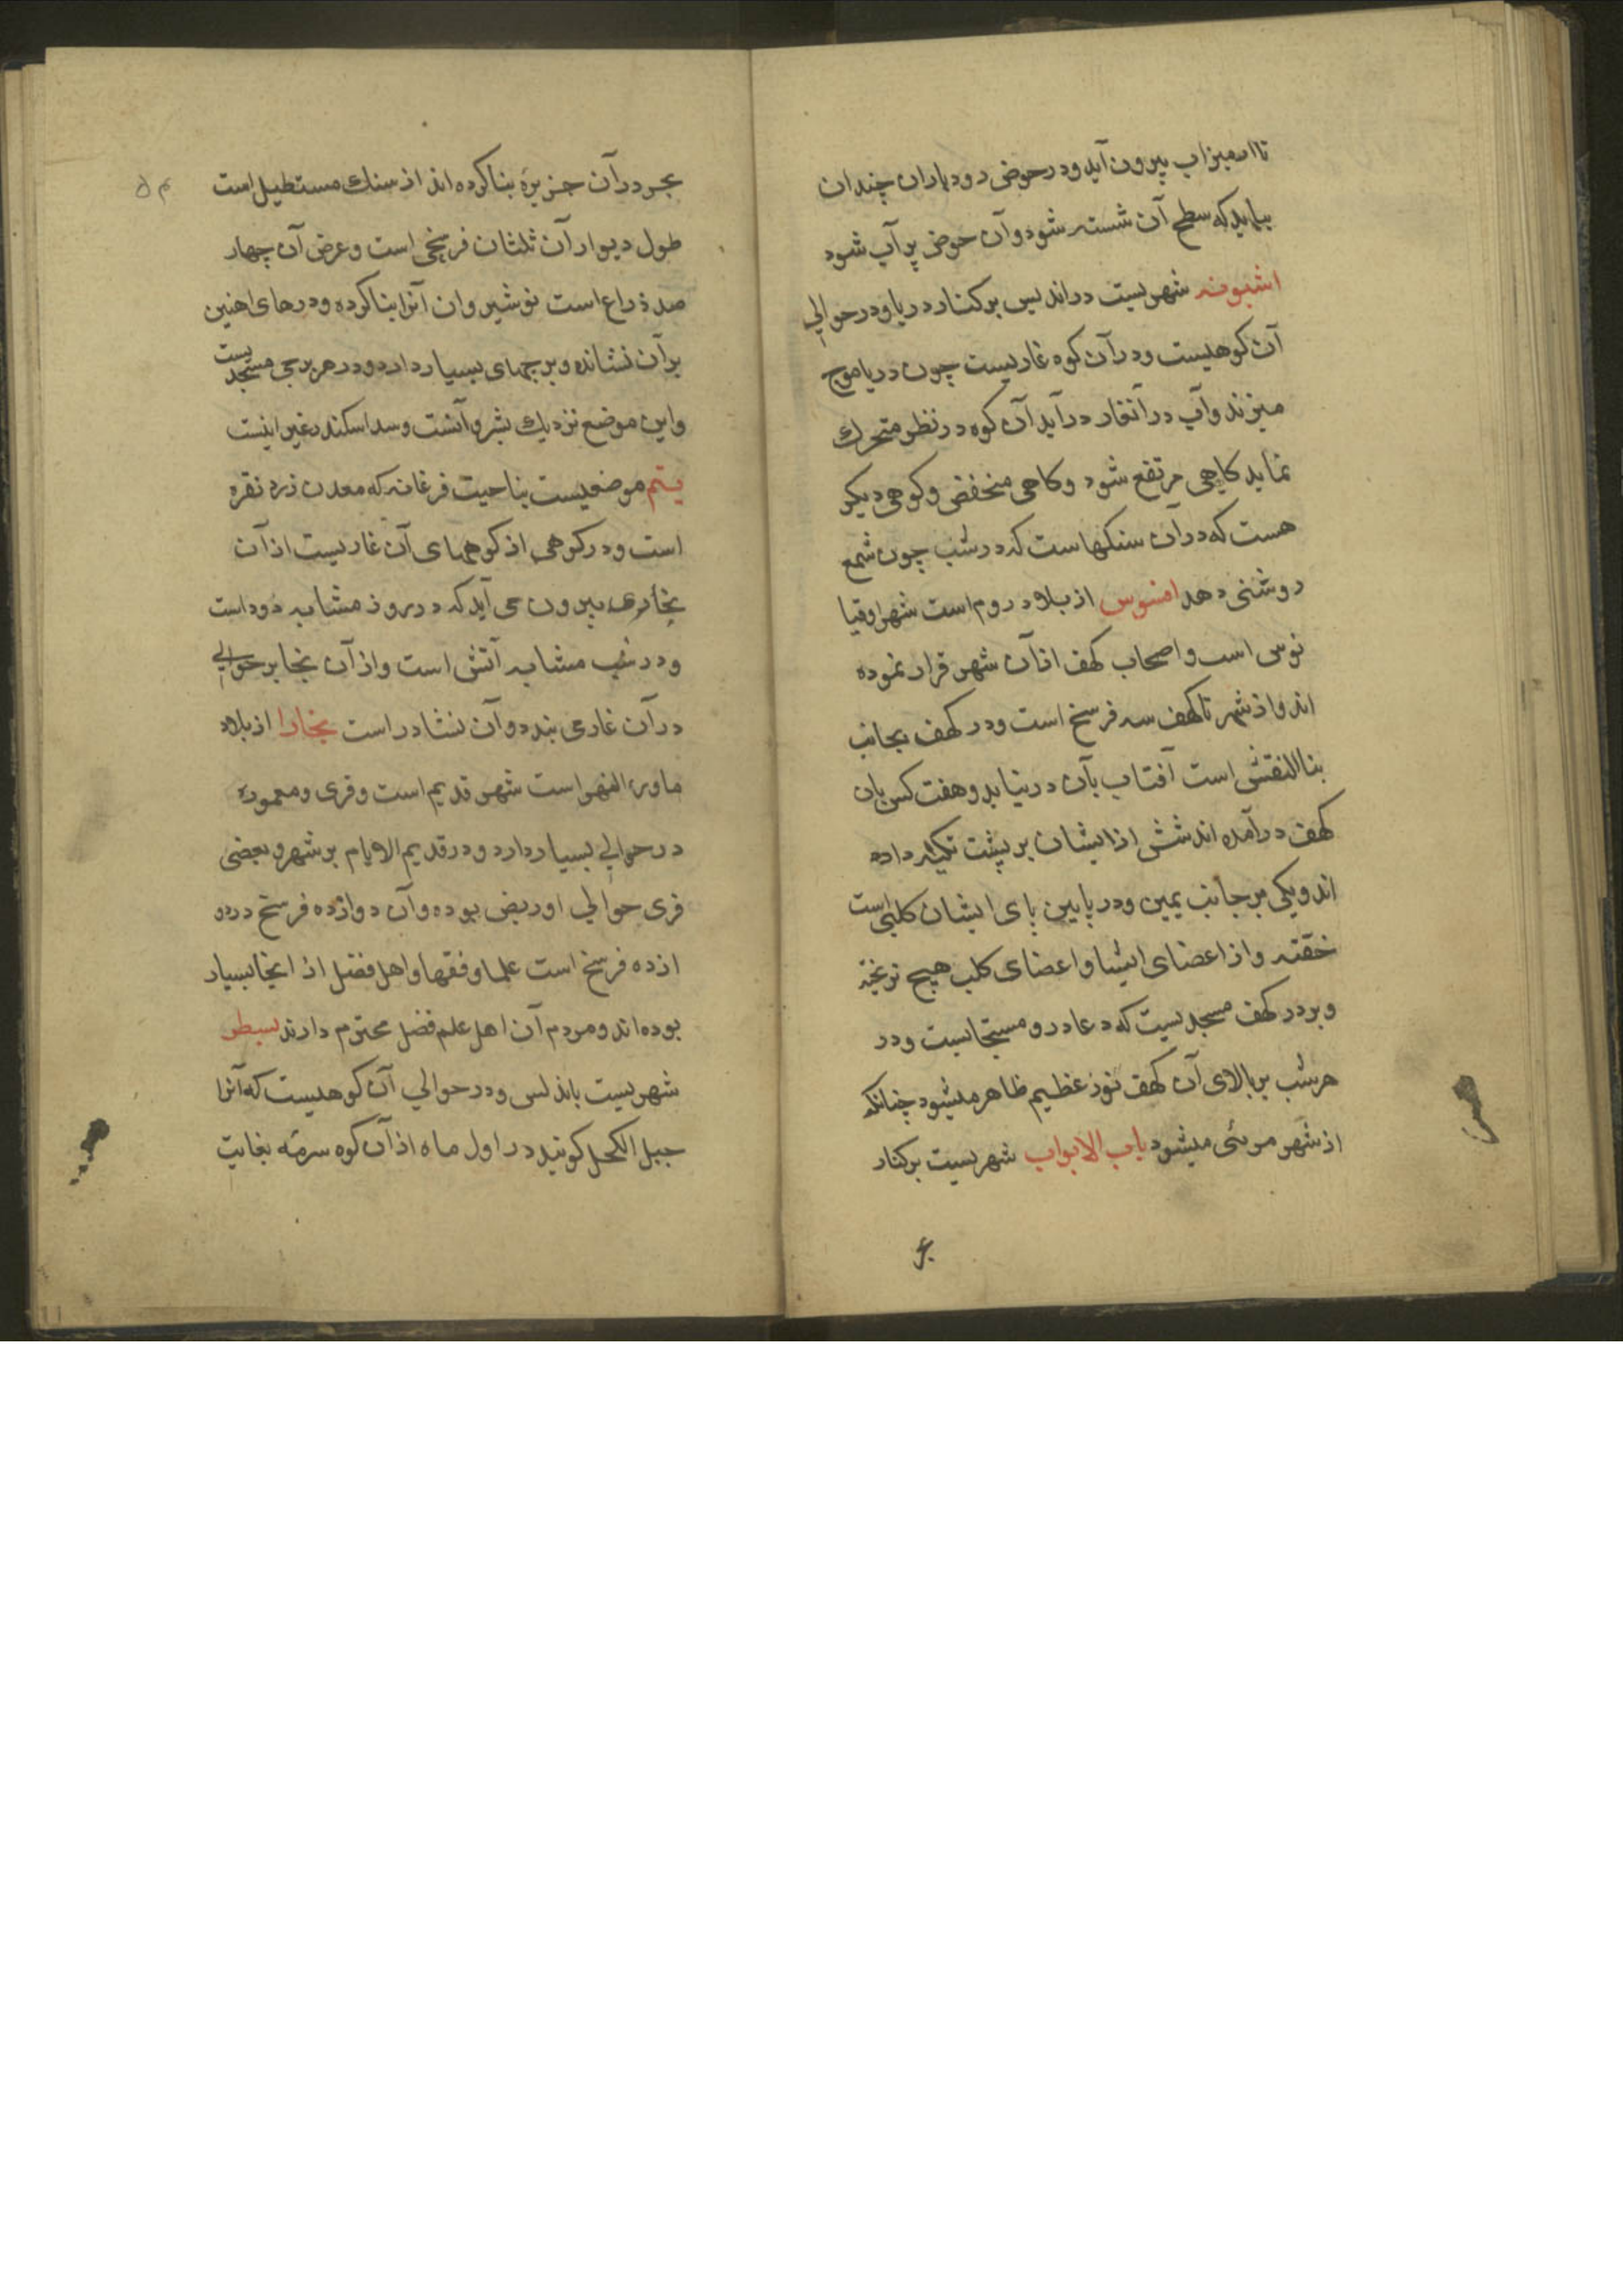 تا از میزاب بیرون آید و در حوض رود باران چندان
بیاید که سطح آن شسته شود و آن حوض پر آب شود
اشبونه شهریست در اندلس بر کنار دریا و در حوالی
آن کوهیست و در آن کوه غاریست چون دریا موج
میزند و آب در آنغار درآید آن کوه در نظر متحرک
نماید کاهی مرتفع شود و کاهی منخفض و کوهی دیکر
هست که در آن سنکهاست که در شب چون شمع
روشنی دهد افسوس از بلاد روم است شهر اوقیا
نوس است و اصحاب کهف از آن شهر فرار نموده
اند و از شهر تا کهف سه فرسخ است و در کهف بجانب
بنات النعش است آفتاب بآن در نیاید و هفت کس بان
کهف درآمده اند شش از ایشان بر پشت تکیه داده
اند و یکی بر جانب یمین و در پایین پای ایشان کلبی است
خفته و از اعضای ایشا و اعضای کلب هیچ نریخته
و بر در کهف مسجدیست که دعا در و مستجابست و در
هر شب بر بالای آن کهف نور عظیم ظاهر میشود چنانکه
از شهر مرئی میشود باب الابواب شهریست بر کنار
بحر در آن جزیرهٔ بنا کرده اند از سنک مستطیل است
طول دیوار آن ثلثان فرسخی است و عرض آن چهار
صد ذراع است نوشیروان آنرا بنا کرده و درهای اهنین
بر آن نشانده و برجهای بسیار دارد و در هر برجی مسجدیست
و این موضع نزدیک بشروانست و سد اسکندر غیر اینست
یتم موضعیست بناحیت فرغانه که معدن زر و نقره
است و در کوهی از کوههای آن غاریست از آن
بخاری بیرون می آید که در روز مشابه دود است
و در شب مشابه آتش است و از آن بخار بر حوالی
در آن غار می بندد و آن نشادر است بخارا از بلاد
ماوراء النهر است شهر قدیم است و قری و معموره
در حوالی بسیار دارد و در قدیم الایام بر شهر و بعضی
قری حوالی او ربض بوده و آن دوازده فرسخ در دو
ازده فرسخ است علما و فقها و اهل فضل از اینجا بسیار
بوده اند و مردم آن اهل علم فضل محترم دارند بسطه
شهریست باندلس و در حوالی آن کوهیست که آنرا
جبل الکحل کویند در اول ماه از آن کوه سرمه بغایت